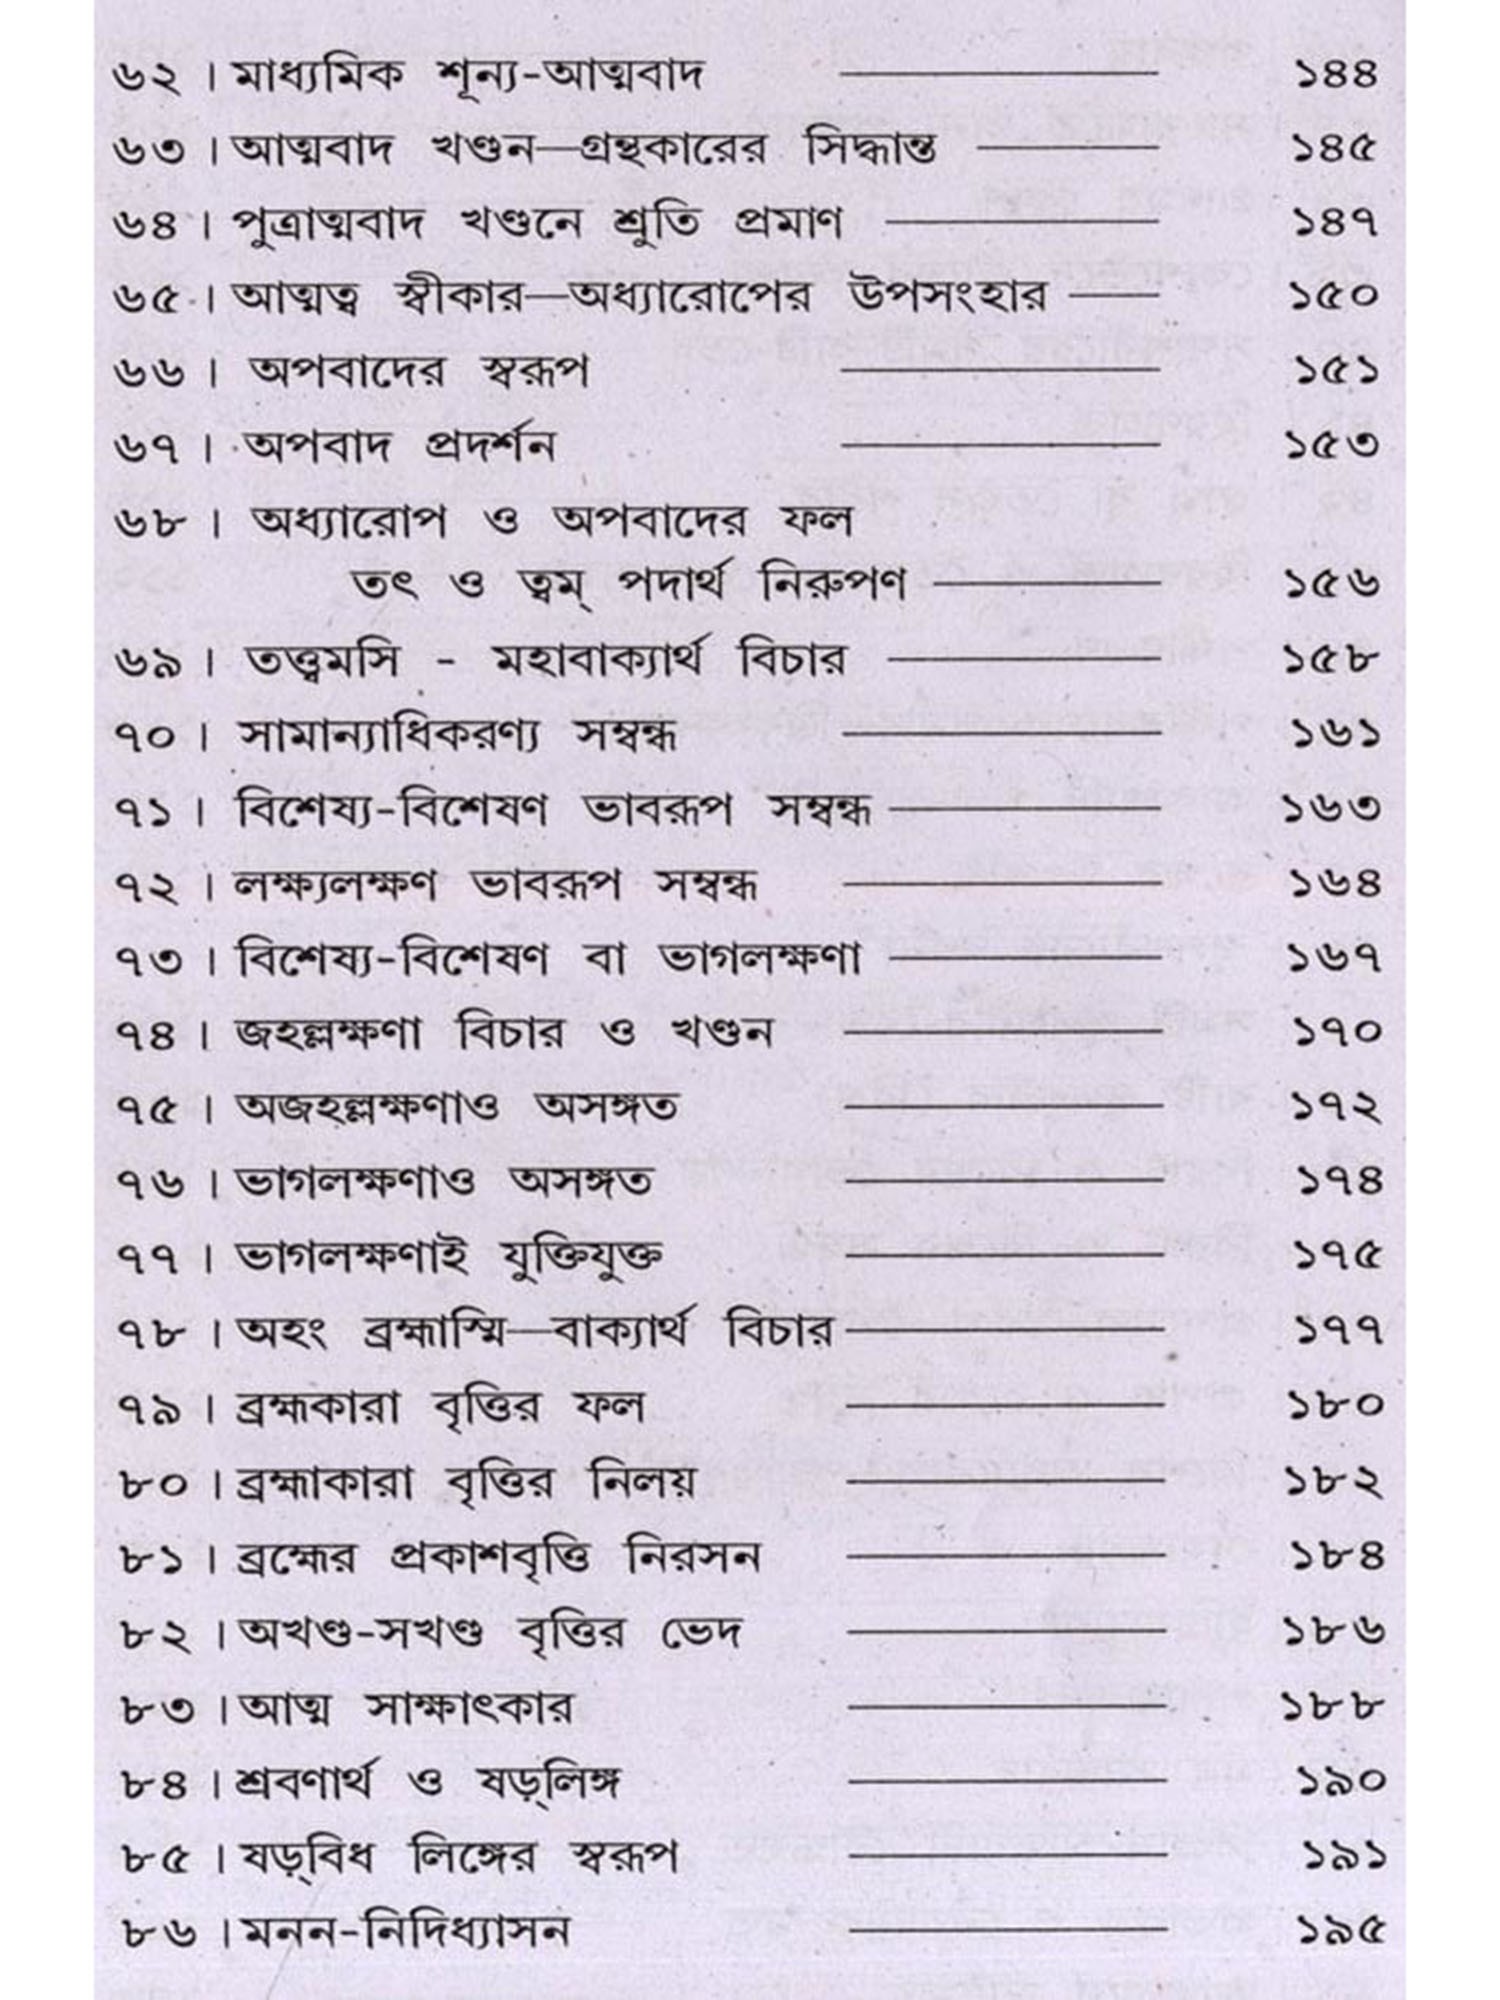 ৬২ । মাধ্যমিক শূন্য-আত্মবাদ ——— ১৪৪
৬৩ । আত্মবাদ খণ্ডন—গ্রন্থকারের সিদ্ধান্ত ——— ১৪৫
৬৪ । পুত্রাত্মবাদ খণ্ডনে শ্রুতি প্রমাণ ——— ১৪৭
৬৫ । আত্মত্ব স্বীকার—অধ্যারোপের উপসংহার ——— ১৫০
৬৬ । অপবাদের স্বরূপ ——— ১৫১
৬৭ । অপবাদ প্রদর্শন ——— ১৫৩
৬৮ । অধ্যারোপ ও অপবাদের ফল
তৎ ও ত্বম্ পদার্থ নিরুপণ ——— ১৫৬
৬৯ । তত্ত্বমসি - মহাবাক্যার্থ বিচার ——— ১৫৮
৭০ । সামান্যাধিকরণ্য সম্বন্ধ ——— ১৬১
৭১ । বিশেষ্য-বিশেষণ ভাবরূপ সম্বন্ধ ——— ১৬৩
৭২ । লক্ষ্যলক্ষণ ভাবরূপ সম্বন্ধ ——— ১৬৪
৭৩ । বিশেষ্য-বিশেষণ বা ভাগলক্ষণা ——— ১৬৭
৭৪ । জহল্লক্ষণা বিচার ও খণ্ডন ——— ১৭০
৭৫ । অজহল্লক্ষণাও অসঙ্গত ——— ১৭২
৭৬ । ভাগলক্ষণাও অসঙ্গত ——— ১৭৪
৭৭ । ভাগলক্ষণাই যুক্তিযুক্ত ——— ১৭৫
৭৮ । অহং ব্রহ্মাস্মি—বাক্যার্থ বিচার ——— ১৭৭
৭৯ । ব্রহ্মকারা বৃত্তির ফল ——— ১৮০
৮০ । ব্রহ্মাকারা বৃত্তির নিলয় ——— ১৮২
৮১ । ব্রহ্মের প্রকাশবৃত্তি নিরসন ——— ১৮৪
৮২ । অখণ্ড-সখণ্ড বৃত্তির ভেদ ——— ১৮৬
৮৩ । আত্ম সাক্ষাৎকার ——— ১৮৮
৮৪ । শ্রবণার্থ ও ষড়্‌লিঙ্গ ——— ১৯০
৮৫ । ষড়্‌বিধ লিঙ্গের স্বরূপ ——— ১৯১
৮৬ । মনন-নিদিধ্যাসন ——— ১৯৫